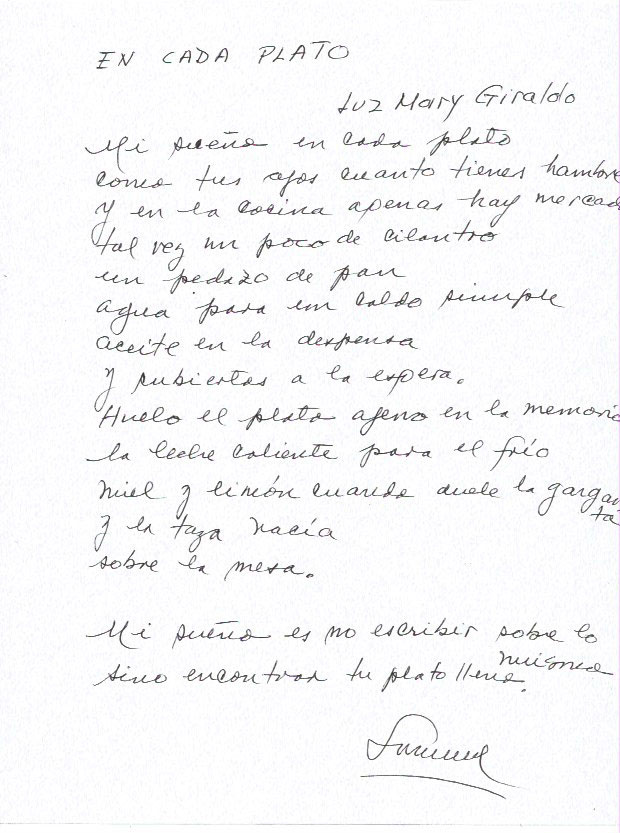 EN CADA PLATO
Luz Mary Giraldo
Mi sueño en cada plato
como tus ojos cuanto tienes hambre
y en la cocina apenas hay mercad
tal vez un poco de cilantro
un pedazo de pan
agua para un caldo simple
aceite en la despensa
y cubiertos a la espera.
Huelo el plato ajeno en la memoria
la leche caliente para el frío
miel y limón cuando duele la gargan
ta
y la taza vacía
sobre la mesa.
Mi sueño es no escribir sobre lo
mismo
sino encontrar tu plato lleno.